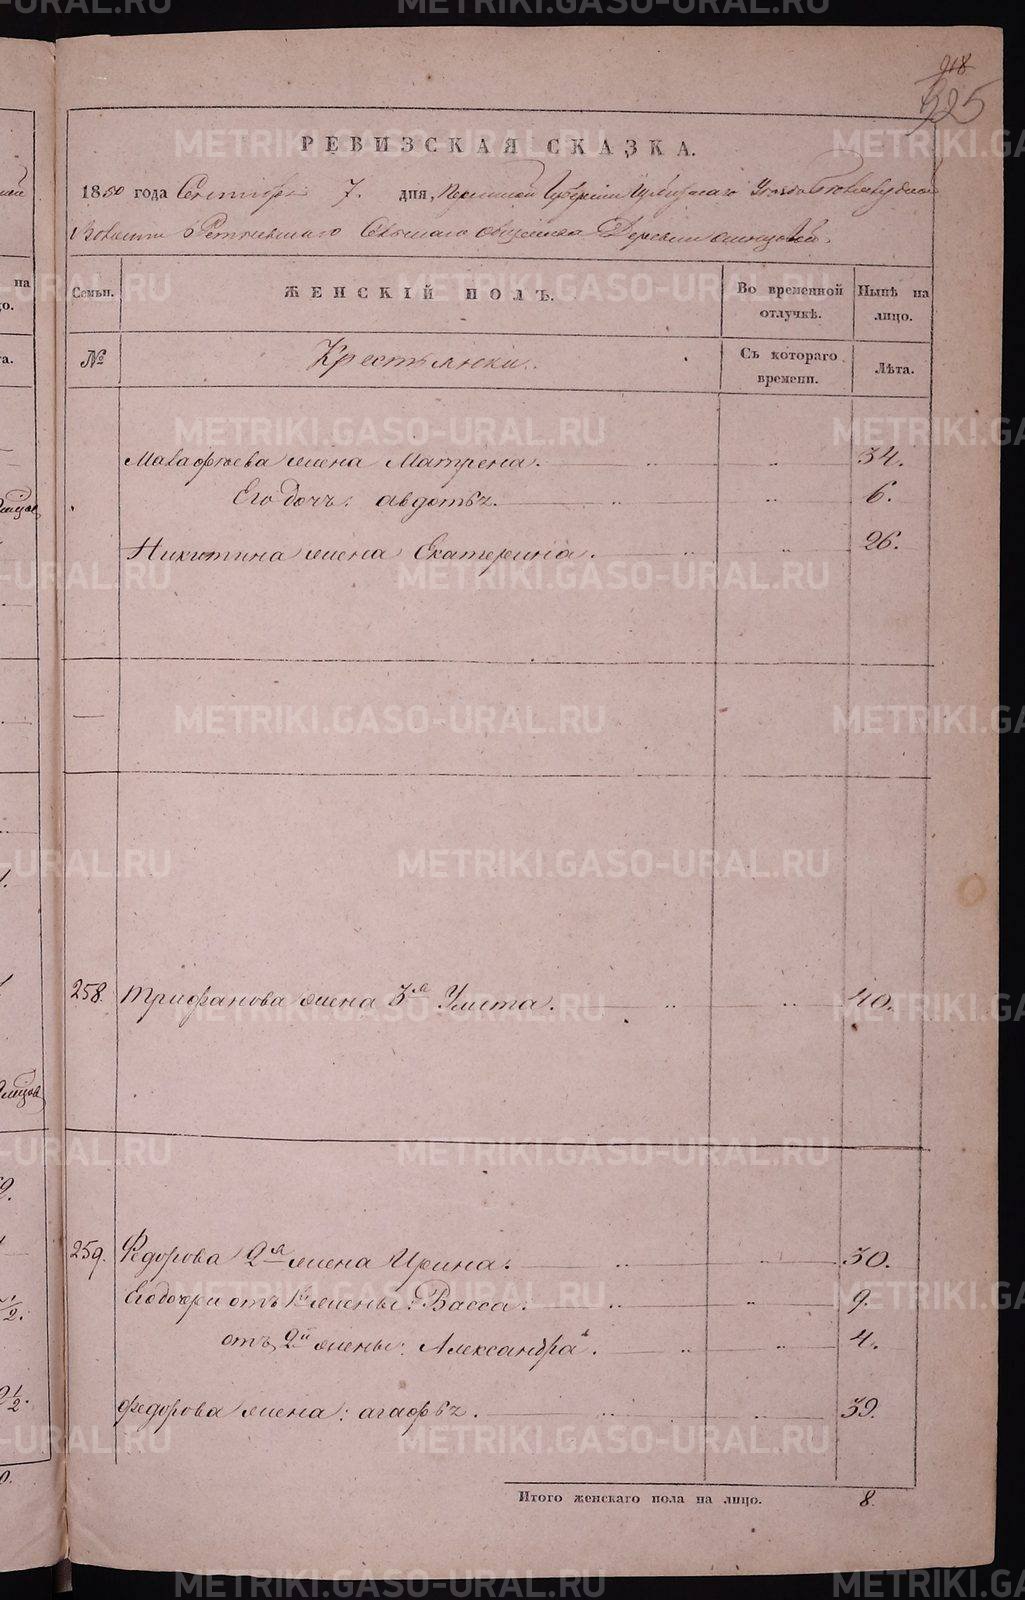 918
325
РЕВИЗСКАЯ СКАЗКА.
1850 года Сентября 7. дня, Пермской Губернии Ирбитскаго Уезда
Волости Ретневскаго Сельскаго общества Деревни
Семьи. ЖЕНСКІЙ ПОЛЪ. Во временной отлучкѣ. Нынѣ на лицо.
№ Крестьянки. Съ котораго времени. Лѣта.
жена Матрена. 34.
Его дочь: авдотья. 6.
Никитина жена Екатерина. 26.
258. Трифанова жена 3я Улита. 40.
259. Федорова 2я жена Ирина. 30.
Его дочери отъ 1й жены: Васса. 9.
отъ 2й жены: Александра. 4.
федорова жена: агафья. 39.
Итого женскаго пола на лицо. 8.
METRIKI.GASO-URAL.RU